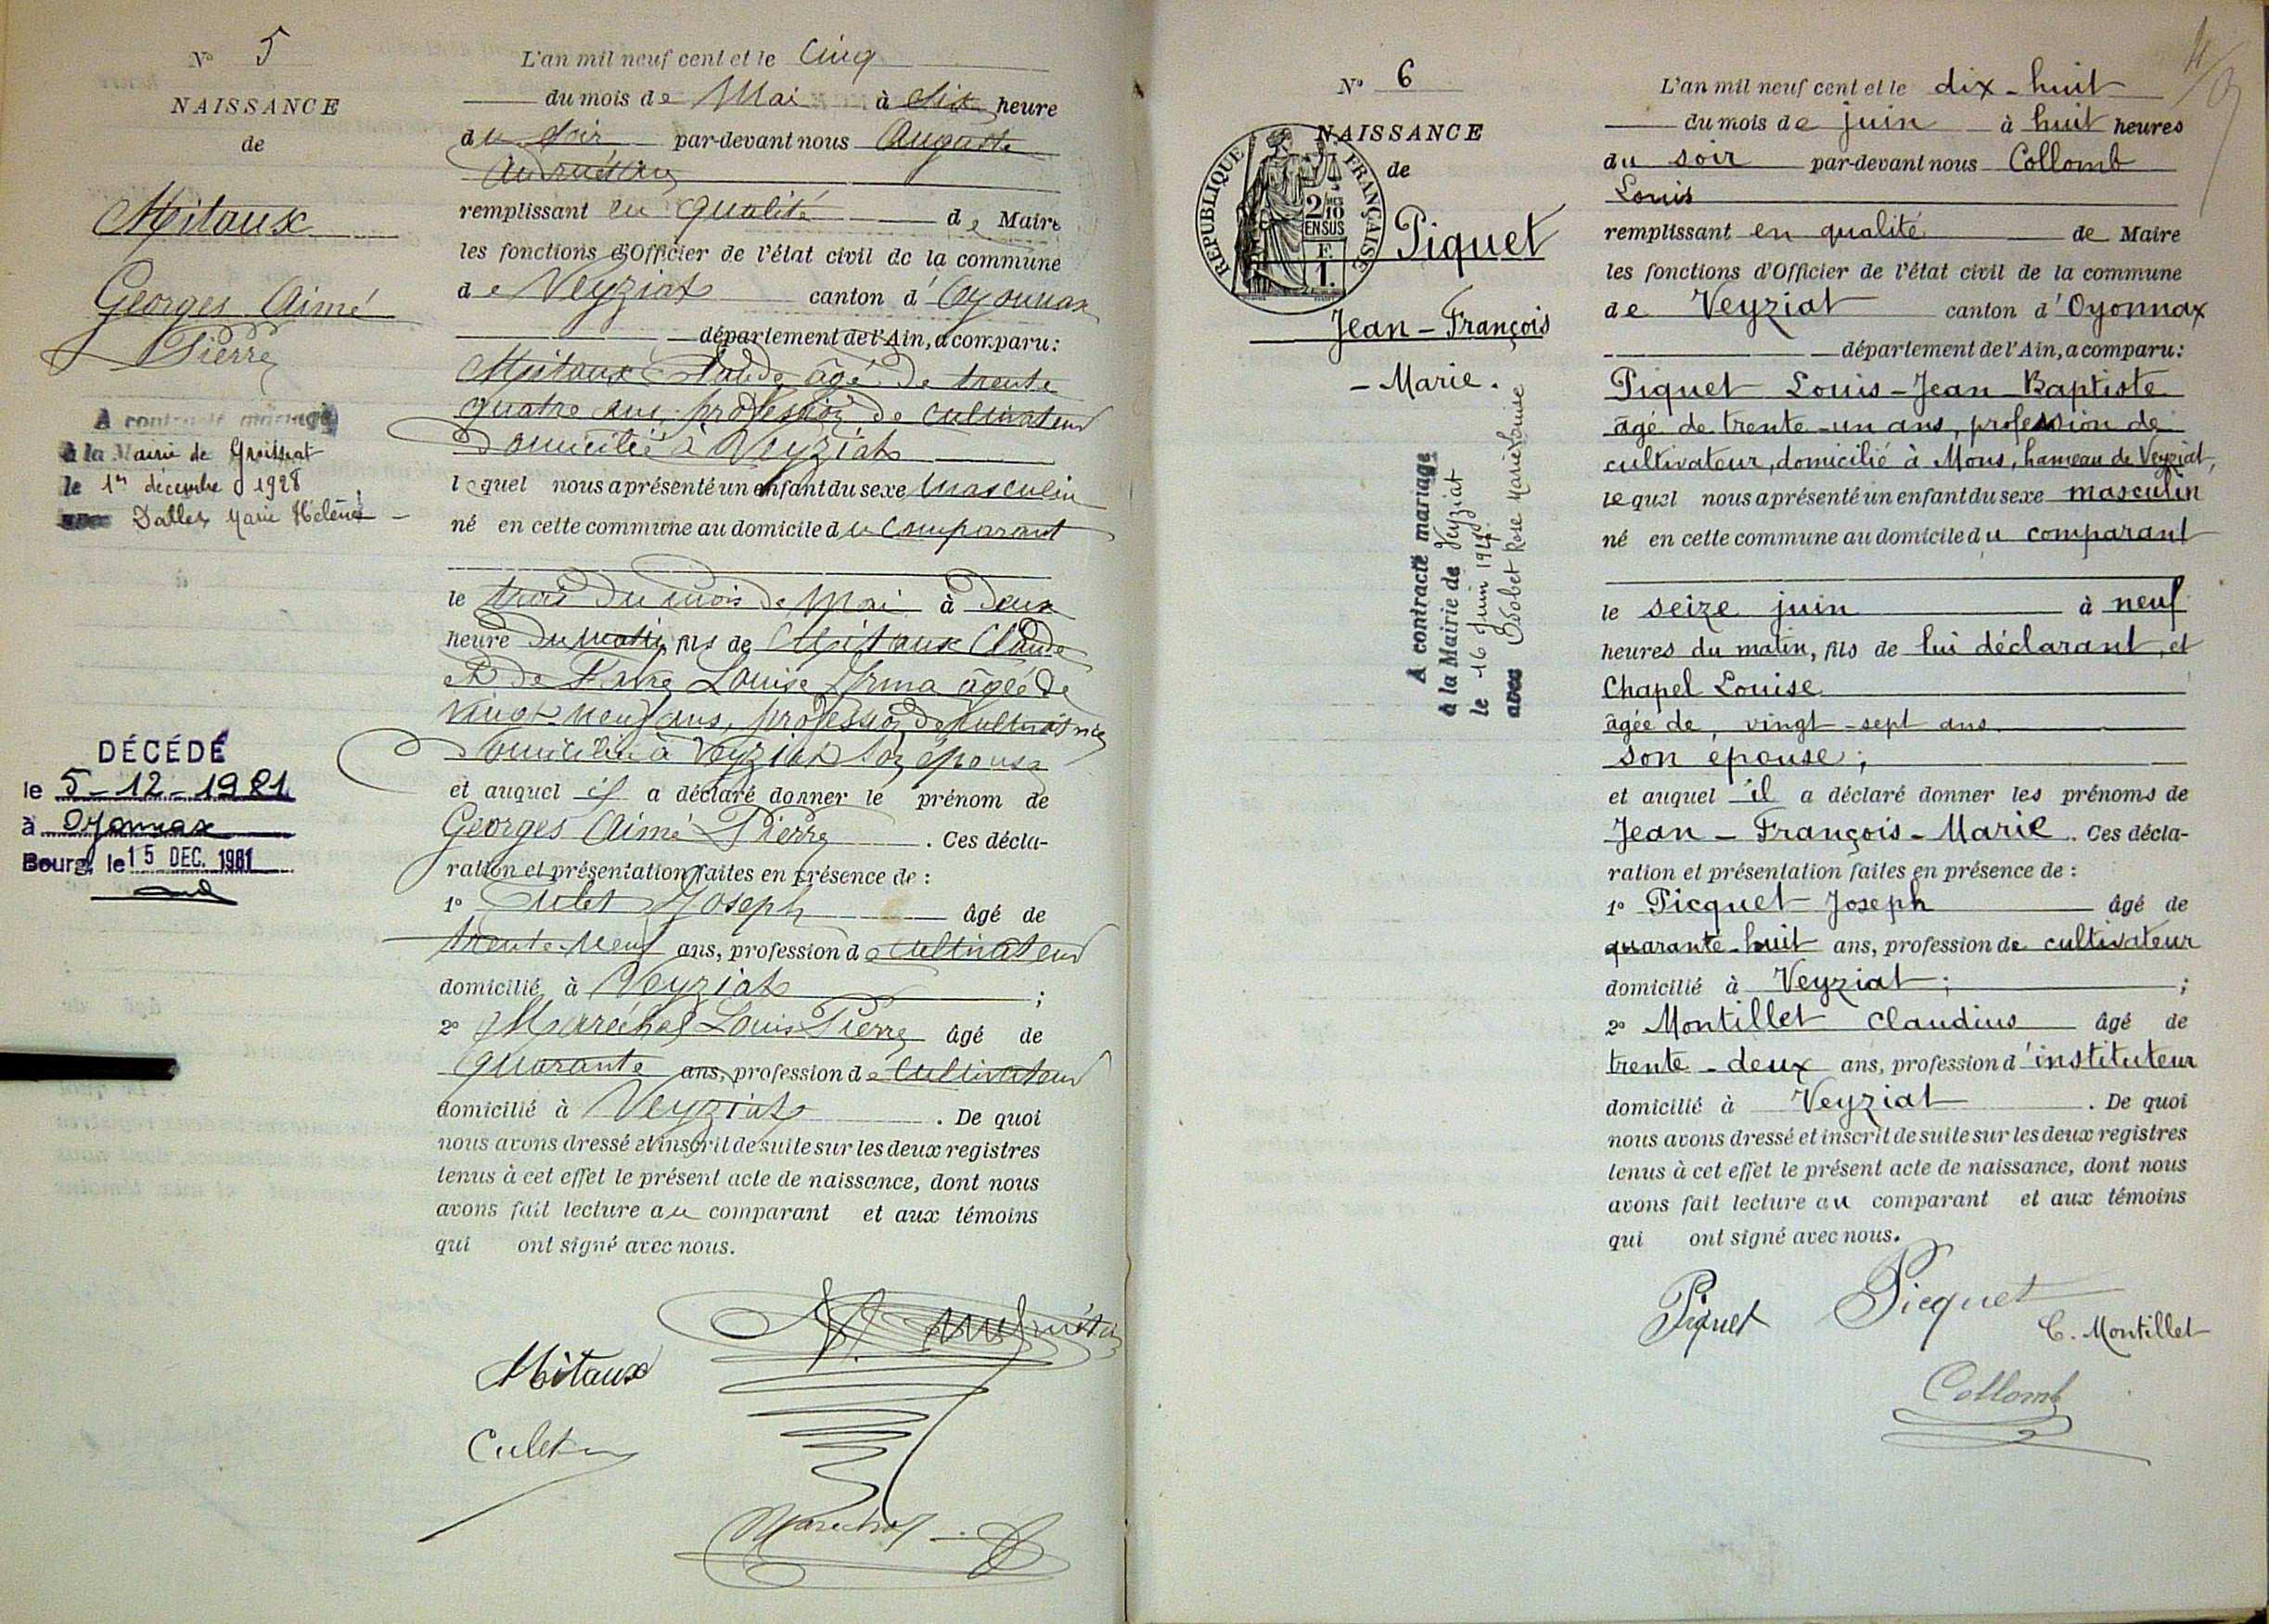 N° 5
NAISSANCE
de
Mitaux
Georges Aimé
Pierre
A contracté mariage
à la Mairie de Groissiat
le 1er décembre 1928
avec Dallex Marie Hélène
DÉCÉDÉ
le 5-12-1981
à Oyonnax
Bourg, le 15 DEC. 1981
L'an mil neuf cent et le Cinq
du mois de Mai à Six heure
du Soir par-devant nous Auguste
remplissant en qualité de Maire
les fonctions d'Officier de l'état civil de la commune
de Veyziat canton d'Oyonnax
département de l'Ain, a comparu:
Mitaux Claude âgé de trente
quatre ans, profession de cultivateur
Domicilié à Veyziat
lequel nous a présenté un enfant du sexe masculin
né en cette commune au domicile du comparant
le trois du mois de Mai à Deux
heure du matin, fils de Mitaux Claude
et de Louise Irma âgée de
vingt-neuf ans, profession de cultivatrice
Domiciliée à Veyziat son épouse
et auquel il a déclaré donner le prénom de
Georges Aimé Pierre . Ces décla-
ration et présentation faites en présence de :
1° Culet Joseph âgé de
trente-neuf ans, profession de cultivateur
domicilié à Veyziat ;
2° Maréchal Louis Pierre âgé de
quarante ans, profession de Cultivateur
domicilié à Veyziat . De quoi
nous avons dressé et inscrit de suite sur les deux registres
tenus à cet effet le présent acte de naissance, dont nous
avons fait lecture au comparant et aux témoins
qui ont signé avec nous.
Mitaux
Culet
Maréchal
N° 6
NAISSANCE
de
REPUBLIQUE FRANÇAISE
2/10
EN SUS
F.
1.
Piquet
Jean-François
-Marie.
A contracté mariage
à la Mairie de Veyziat
le 16 Juin 194
avec Bobet Rose Marie Louise
L'an mil neuf cent et le dix-huit
du mois de juin à huit heures
du soir par-devant nous Collomb
Louis
remplissant en qualité de Maire
les fonctions d'Officier de l'état civil de la commune
de Veyziat canton d'Oyonnax
département de l'Ain, a comparu:
Piquet Louis-Jean-Baptiste
âgé de trente-un ans, profession de
cultivateur, domicilié à Mons, hameau de Veyziat,
lequel nous a présenté un enfant du sexe masculin
né en cette commune au domicile du comparant
le seize juin à neuf
heures du matin, fils de lui déclarant, et
Chapel Louise
âgée de, vingt-sept ans
son épouse;
et auquel il a déclaré donner les prénoms de
Jean-François-Marie. Ces décla-
ration et présentation faites en présence de :
1° Picquet Joseph âgé de
quarante-huit ans, profession de cultivateur
domicilié à Veyziat; ;
2° Montillet Claudius âgé de
trente-deux ans, profession d'instituteur
domicilié à Veyziat . De quoi
nous avons dressé et inscrit de suite sur les deux registres
tenus à cet effet le présent acte de naissance, dont nous
avons fait lecture au comparant et aux témoins
qui ont signé avec nous.
Piquet Picquet
C. Montillet
Collomb